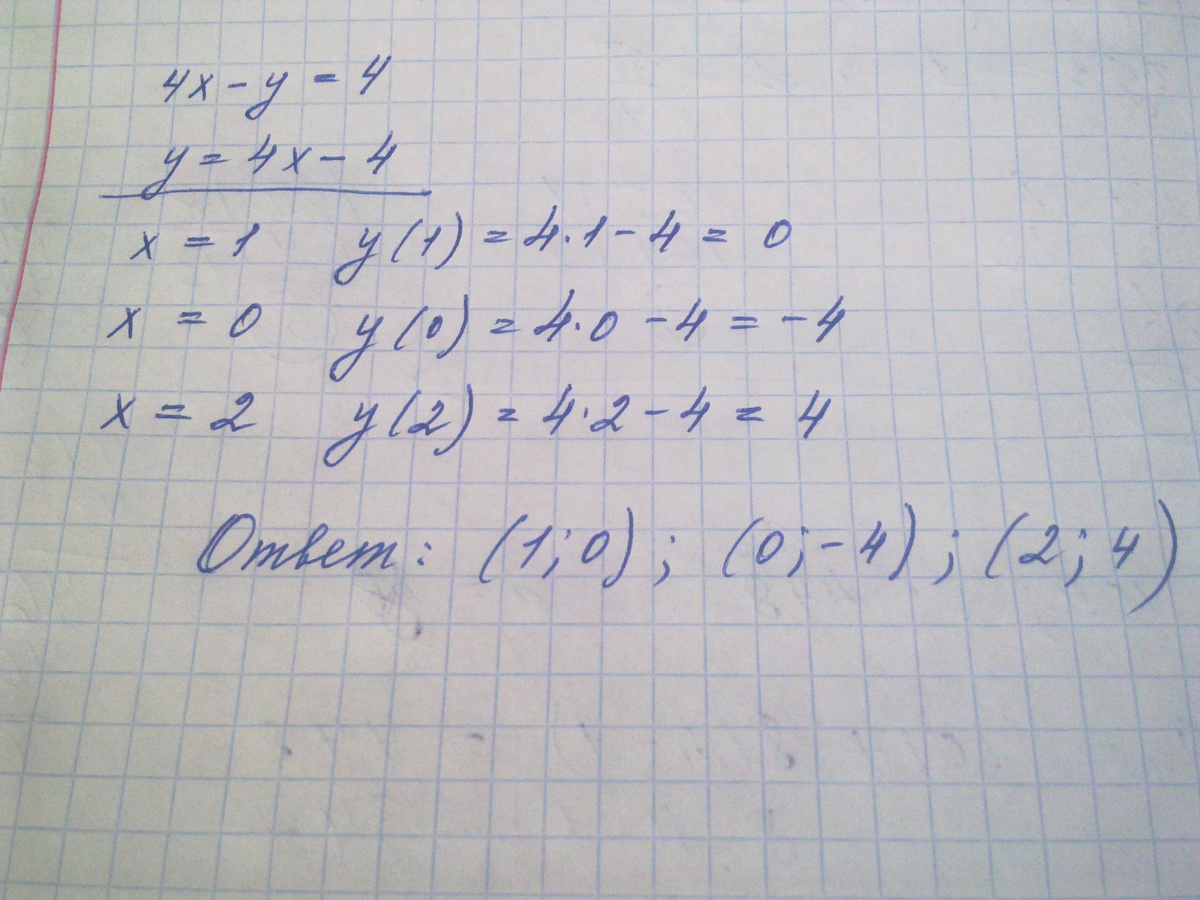 4x - y = 4
y = 4x - 4
x = 1 y(1) = 4·1 - 4 = 0
x = 0 y(0) = 4·0 - 4 = -4
x = 2 y(2) = 4·2 - 4 = 4
Ответ: (1; 0); (0; -4); (2; 4)